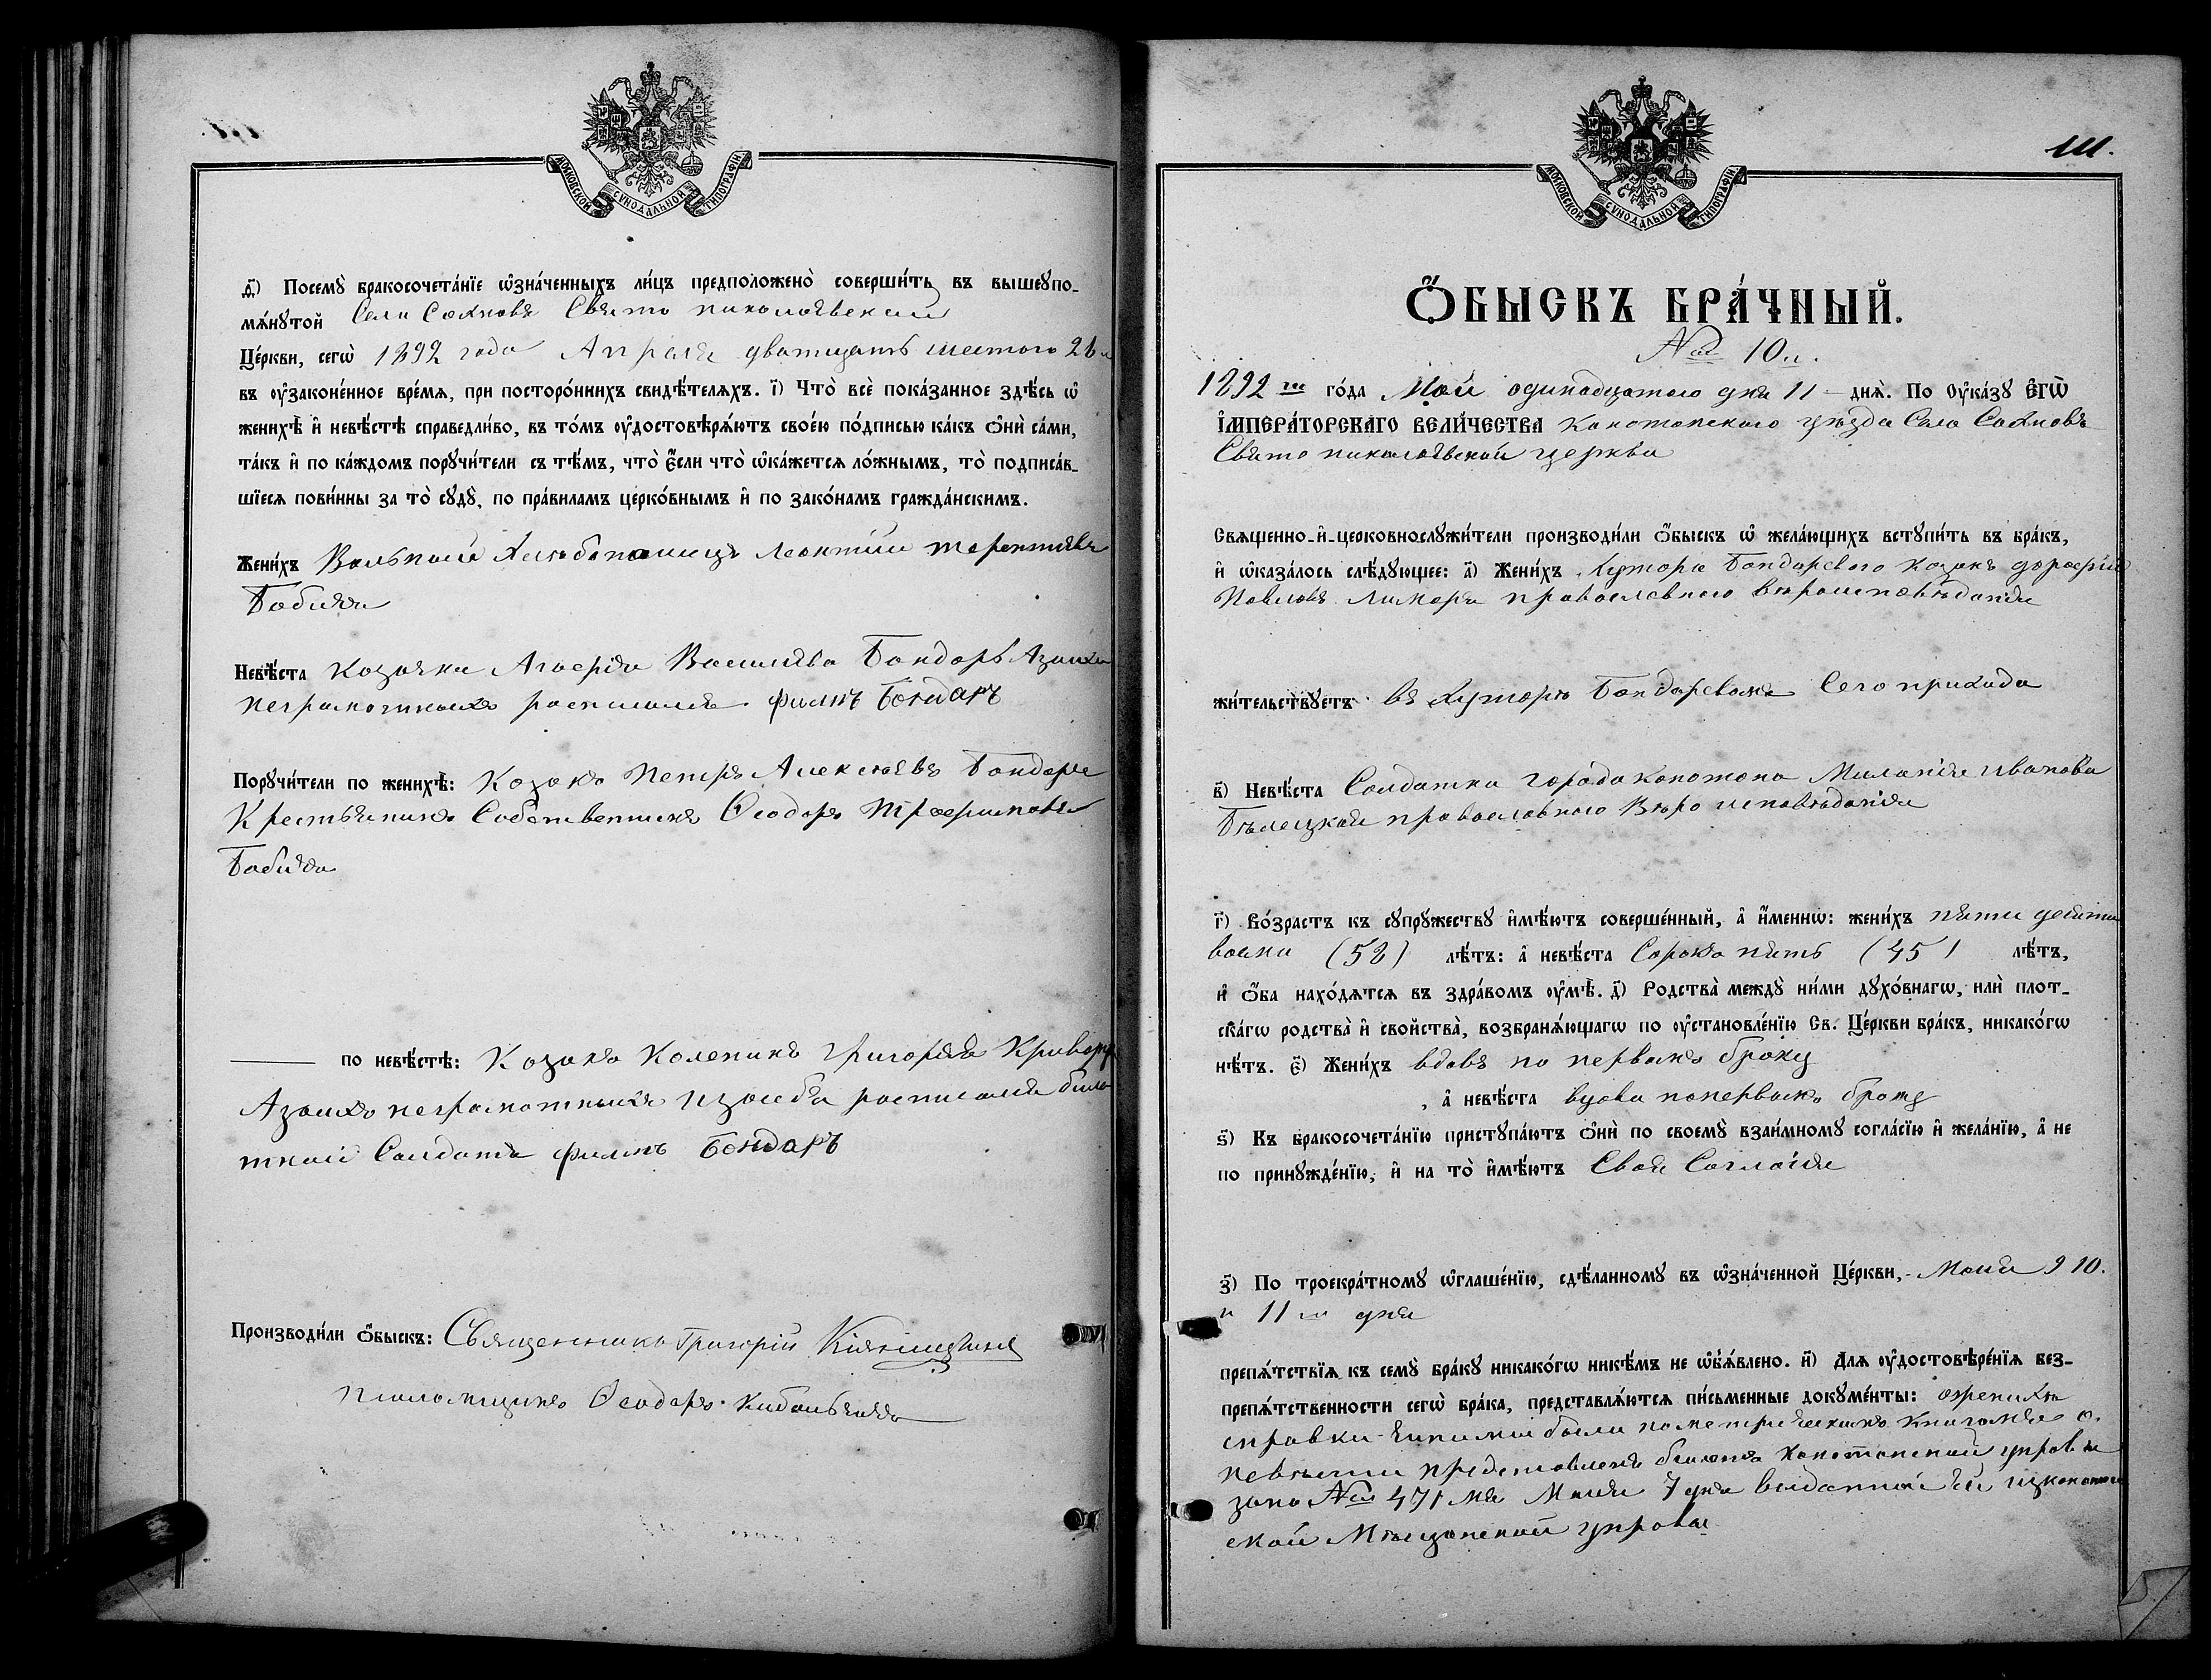 МОСКОВСКОЙ СѴНОДАЛЬНОЙ ТИПОГРАФІИ
д҃і) Посемꙋ̀ бракосочета́нїе ѡ҆зна́ченныхъ ли́цъ предположено̀ соверши́ть въ вышеꙋпо-
мѧ́нꙋтой Села Сахновъ Свято николаевской
Це́ркви, сегѡ̀ 1892 года Апреля дватцать шестого 26
въ ᲂу҆законе́нное вре́мѧ, при посторо́ннихъ свидѣ́телѧхъ. і҃) Что̀ всѐ пока́занное здѣ́сь ѡ҆
женихѣ̀ и҆ невѣ́стѣ справедли́во, въ то́мъ ᲂу҆достовѣрѧ́ютъ свое́ю по́дписью ка́къ ѻ҆нѝ са́ми,
та́къ и҆ по ка́ждомъ порꙋчи́тели съ тѣ́мъ, что̀ є҆́сли что̀ ѡ҆ка́жетсѧ ло́жнымъ, то̀ подписа́в-
шїесѧ пови́нны за то̀ сꙋдꙋ̀, по пра́виламъ церко́внымъ и҆ по зако́намъ гражда́нскимъ.
Жени́хъ Вольный Хлебопашецъ Леонтий терентиевъ
Бабича
Невѣ́ста козачка Агафия Василева Бондарь Азаихъ
неграмотныхъ росписался филипъ Бондаръ
Порꙋчи́тели по женихѣ̀: Козакъ Петръ Алексеевъ Бондаръ
Крестьянинъ Собственникъ Ѳеодоръ Трофимовъ
Бабича
по невѣ́стѣ: Козакъ Каленикъ григориевъ
Азаихъ неграмотныхъ росписался
Солдатъ филипъ Бондаръ
Производи́ли ѻ҆́быскъ: Священникъ Григорій
псаломщикъ Ѳеодоръ
111.
МОСКОВСКОЙ СѴНОДАЛЬНОЙ ТИПОГРАФІИ
Ѻ҆́БЫСКЪ БРА́ЧНЫЙ.
№ 10й.
1892 го́да Май одинадцатого дня 11 – днѧ̀. По ᲂу҆ка́зꙋ Є҆ГѠ̀
І҆МПЕРА́ТОРСКАГО ВЕЛИ́ЧЕСТВА Конотопского уезда Села Сахновъ
Свято николаевской церкви
Свѧщенно-и҆-церковнослꙋжи́тели производи́ли ѻ҆́быскъ ѡ҆ жела́ющихъ встꙋпи́ть въ бра́къ,
и҆ ѡ҆каза́лось слѣ́дꙋющее: а҃) Жени́хъ Хутора Бондаревого козакъ дорофей
Павловъ Лимаръ православного вероисповѣдания
жи́тельствꙋетъ въ Хуторѣ Бондаревомъ Сего прихода
в҃) Невѣ́ста Солдатка города конотопа Мелания Иванова
Бѣлецкая православного Вѣро исповѣдания
г҃) Во́зрастъ къ сꙋпрꙋ́жествꙋ и҆мѣ́ютъ соверше́нный, а҆ и҆́меннѡ: жени́хъ пяти десяти
(52) лѣ́тъ: а҆ невѣ́ста Сорокъ пять (45) лѣ́тъ,
и҆ ѻ҆́ба нахо́дѧтсѧ въ здра́вомъ ᲂу҆мѣ̀. д҃) Родства̀ междꙋ̀ ни́ми дꙋхо́внагѡ, илѝ плот-
ска́гѡ родства̀ и҆ свойства̀, возбранѧ́ющагѡ по ᲂу҆становле́нїю Св. Це́ркви бра́къ, никако́гѡ
нѣ́тъ. є҃) Жени́хъ вдовъ по первомъ браку
, а҆ невѣ́ста вдова попервомъ браке
ѕ҃) Къ бракосочета́нїю пристꙋпа́ютъ ѻ҆нѝ по своемꙋ̀ взаи́мномꙋ согла́сїю и҆ жела́нїю, а҆ не
по принꙋжде́нїю, и҆ на то̀ и҆мѣ́ютъ Свое Согласие
з҃) По троекра́тномꙋ ѡ҆глаше́нїю, сдѣ́ланномꙋ въ ѡ҆зна́ченной Це́ркви, Маия 9 10.
и 11 дня
препѧ́тствїѧ къ семꙋ̀ бра́кꙋ никако́гѡ никѣ́мъ не ѡ҆б̾ѧ́влено. и҃) Длѧ ᲂу҆достовѣре́нїѧ без-
препѧ́тственности сегѡ̀ бра́ка, представлѧ́ютсѧ пи́сьменные докꙋме́нты: о женихѣ
справки были по метрическимъ книгамъ о.
невѣсти представленъ билетъ Конотопской управи
зано № 471 Маия 7 дня выданный ей
ской Мѣщанской управы